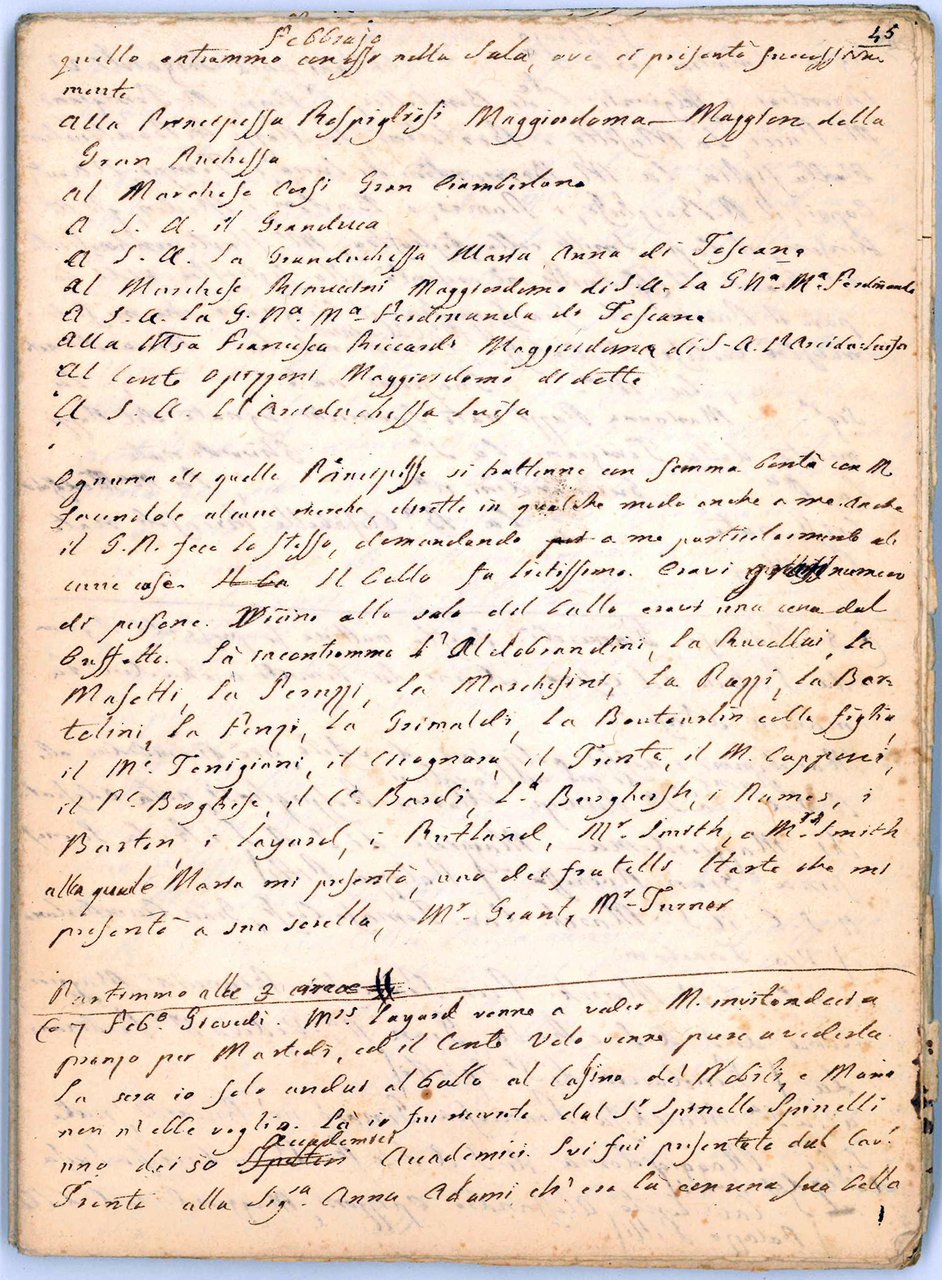 Febbrajo
45
quello entrammo con esso nella Sala, ove ci presentò successiva
mente
Alla Principessa Rospigliosi Maggiordoma Maggiore della
Gran Duchessa
Al Marchese Corsi Gran Ciamberlano
A S. A. il Granduca
A S. A. la Granduchessa Maria Anna di Toscana
Al Marchese Rinuccini Maggiordomo di S.A. la G. Dª. Mª. Ferdinanda
A S. A. la G. Dª. Mª Ferdinanda di Toscana
Alla Francesca Riccardi Maggiordoma di S. A. l'Arcida Luisa
Al Conte Opizzoni Maggiordomo di detta
A S. A. L'Arciduchessa Luisa
Ognuna di quelle Principesse si trattenne con somma bontà con M.
facendole alcune ricerche, dirette in qualche modo anche a me. Anche
il G. D. fece lo stesso, domandando a me particolarmente al
cune cose. Il Ballo fu lietissimo. Eravi numero
di persone. Vicino alla sala del ballo eravi una cena dal
buffetto. Là incontrammo l'Aldobrandini, la Rucellai, la
Masetti, la Peruzzi, la Marchesini, la Pazzi, la Bar
tolini, la Fenzi, la Grimaldi, la Boutourlin colla figlia,
il Me. Torrigiani, il Cicognara, il Trento, il M. Capponi,
il Pe. Borghese, il Ce. Bardi, Ld. Burghersh, i Rames, i
Barton, i Layard, i Rutland, Mr. Smith, e Mrs. Smith
alla quale Maria mi presentò, uno dei fratelli Harte che mi
presentò a sua sorella, Mr. Grant, Mr. Turner
Partimmo alle 3 circa
(a 7 Febo. Giovedì. Mrs. Layard venne a veder M. invitandoci a
pranzo per Martedì, ed il Conte Velo venne pure a vederla.
La sera io solo andai al ballo al Casino dei Nobili, e Maria
non n'ebbe voglia. Là io fui ricevuto dal Sr. Spinello Spinelli
Accademici
uno dei 50 Accademici. Ivi fui presentato dal Cavr.
Trento alla Sigra. Anna Adami ch'era là con una sua bella